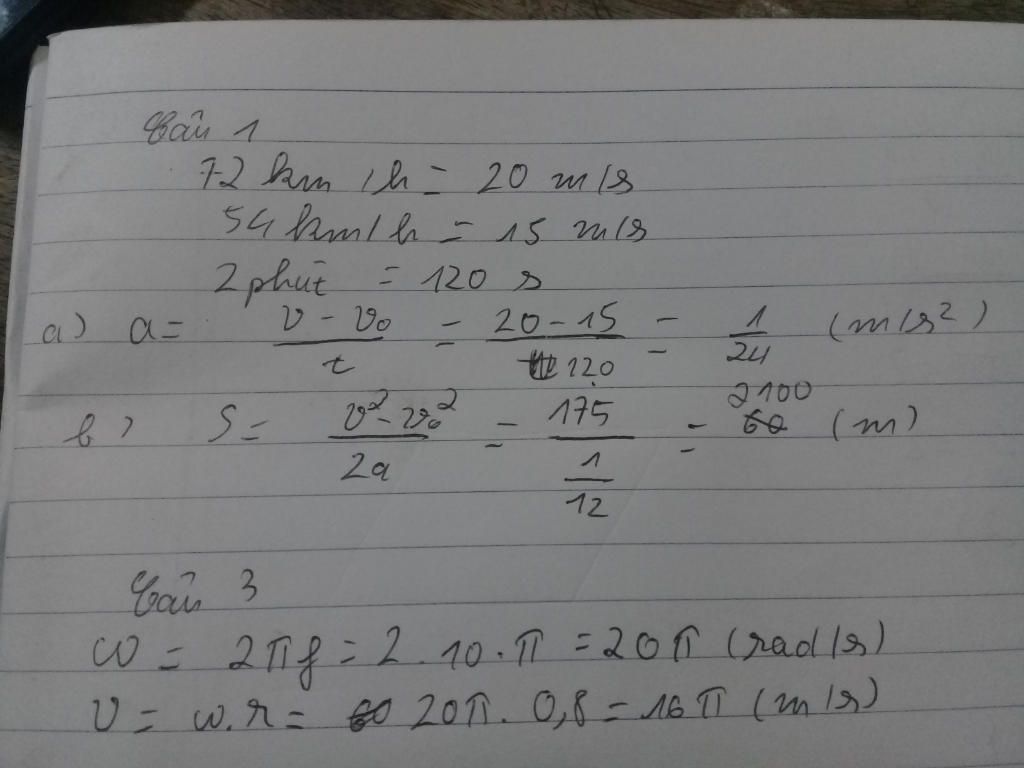 Câu 1
72 km/h = 20 m/s
54 km/h = 15 m/s
2 phút = 120 s
a) a = (v - v₀)/t = (20 - 15)/120 = 1/24 (m/s²)
b) S = (v² - v₀²)/2a = 175/(1/12) = 2100 (m)
Câu 3
ω = 2πf = 2 . 10 . π = 20π (rad/s)
v = ω.r = 20π . 0,8 = 16π (m/s)